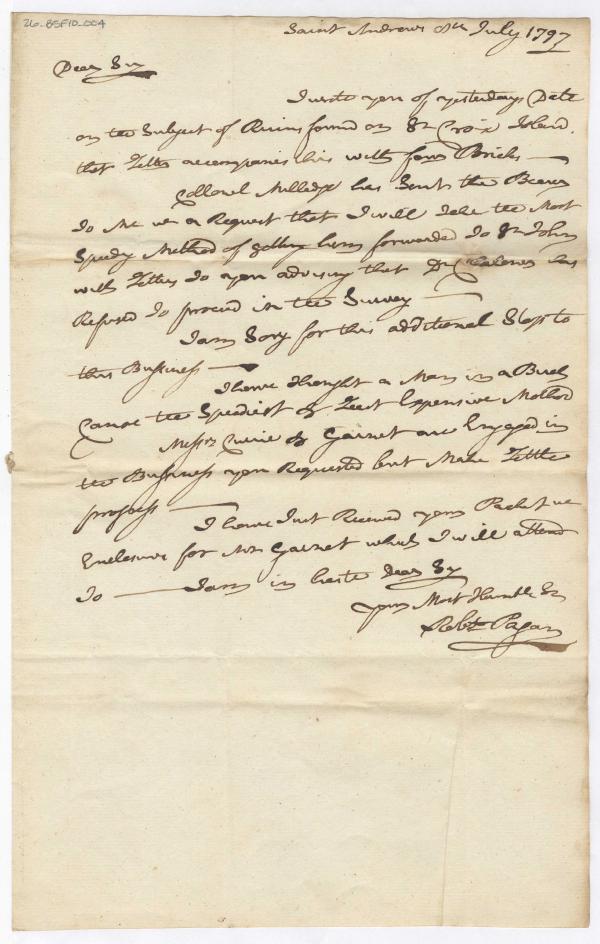 26_BSF10_004
Saint Andrews 8th July 1797
Dear Sir
I wrote you of yesterdays Date
on the Subject of Ruins found on St Croix Island.
that Letter accompanies this with four Bricks —
Collonel Milledge has Sent the Bearer
To Me wt a Request that I will Take the Most
Speedy Method of getting him forwarded To St John
with Letters To you advising that Dr has
Refused To proceed in the Survey —
I am Sory for this additional Stop to
this Business —
I have thought a Man in a Bireh
Canoe the Speediest & Least Expensive Method
Messrs Curie & Garnet are Engaged in
the Business you Requested but Make Little
progress —
I have Just Received your Packet wt
Enclosure for Mr Garnet which I will attend
To — I am in haste Dear Sir
your Most Humble Sr
Robt Pagan